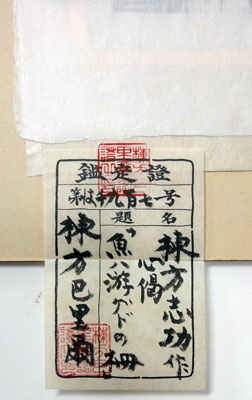 鑑定證
第は千九百七号
題名
棟方志功作
心偈
魚ハ游ガドの柵
棟方巴里爾